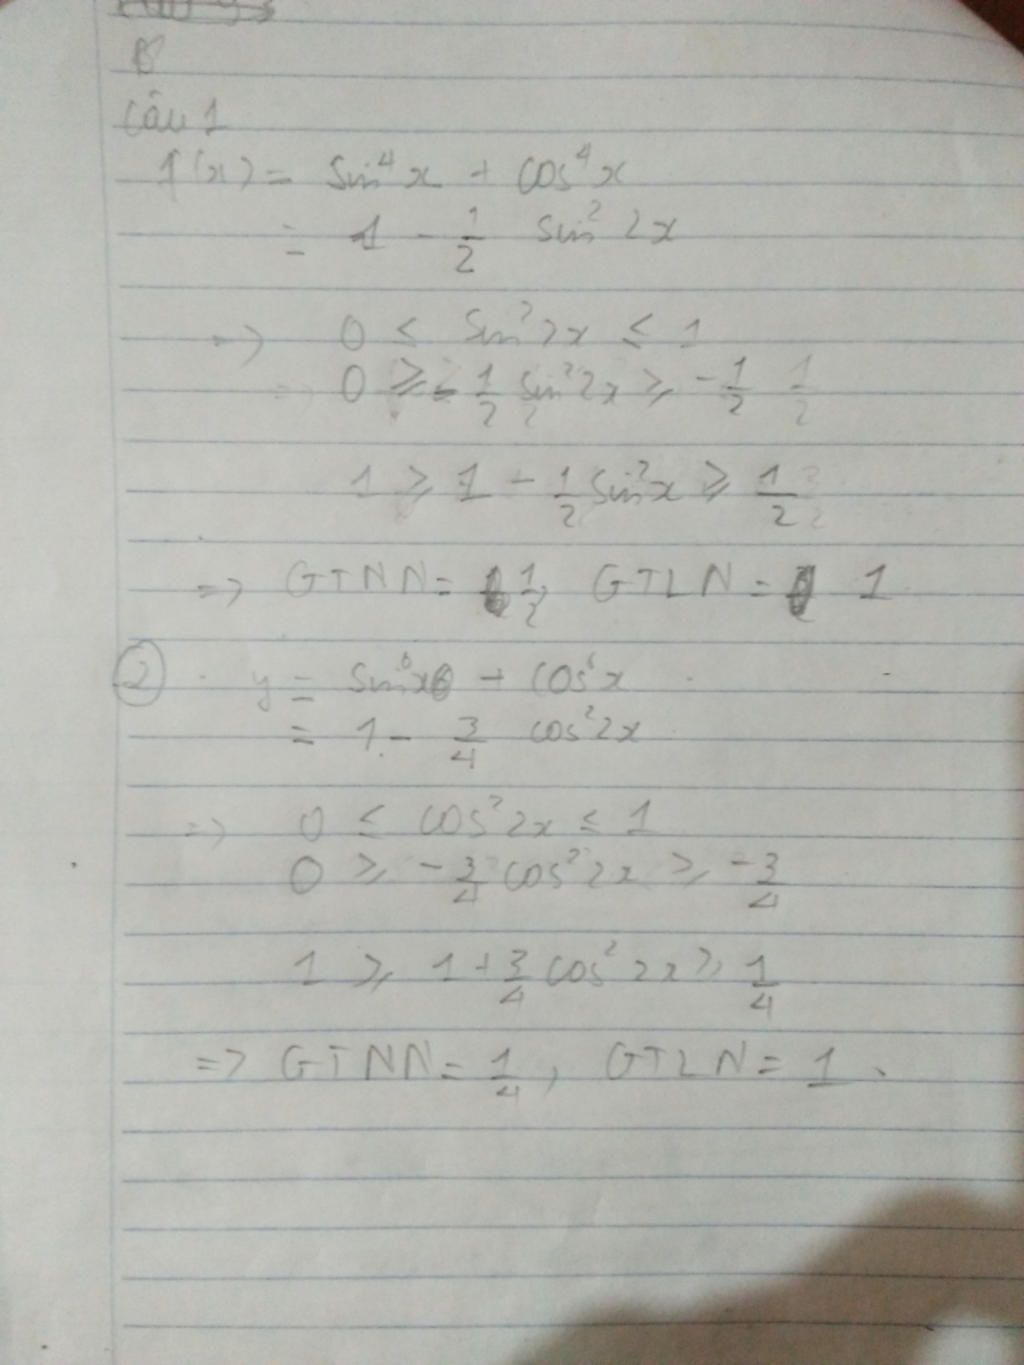 Câu 1
f(x) = sin⁴x + cos⁴x
= 1 - 1/2 sin² 2x
=> 0 ≤ sin² 2x ≤ 1
0 ≥ - 1/2 sin² 2x ≥ - 1/2
1 ≥ 1 - 1/2 sin² x ≥ 1/2
=> GTNN = 1/2, GTLN = 1
2 y = sin⁶x + cos⁶x
= 1 - 3/4 cos² 2x
=> 0 ≤ cos² 2x ≤ 1
0 ≥ - 3/4 cos² 2x ≥ - 3/4
1 ≥ 1 + 3/4 cos² 2x ≥ 1/4
=> GTNN = 1/4, GTLN = 1.